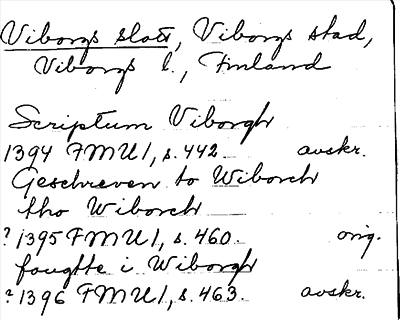 Viborgs slott, Viborgs stad,
Viborgs l., Finland
Scriptum Viborgh
1394 FMU 1, s. 442 avskr.
Geschreven to Wiborch
tho Wiborch
? 1395 FMU 1, s. 460 orig.
fougtte i Wiborgh
? 1396 FMU 1, s. 463 avskr.